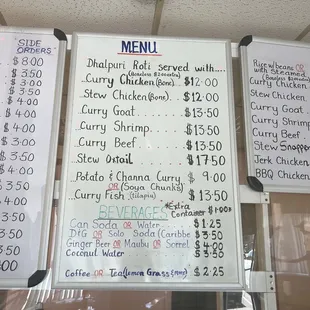 SIDE
ORDERS
$ 8.00
3.50
3.50
4.00
4.00
MENU
Dhalpuri Roti served with....
Curry Chicken (Bone) $12.00
Stew Chicken (Bone). $12.00
Curry Goat $13.50
Curry Shrimp $13.50
Curry Beef $13.50
Stew Oxtail $17.50
Potato & Channa Curry $ 9.00
OR (Soya Chunks)
Curry Fish (tilapia) $13.50
BEVERAGES
*Extra
Container $1.00
Can Soda OR Water $1.25
OR Solo Soda $3.50
Ginger Beer OR Mauby OR Sorrel $4.00
Coconut Water $3.50
Coffee OR Tea (Lemon Grass) $2.25
Rice w/beans OR
with Steamed
Curry Chicken
Stew Chicken
Curry Goat
Curry Shrimp
Curry Beef
Stew Snapper
Jerk Chicken
BBQ Chicken